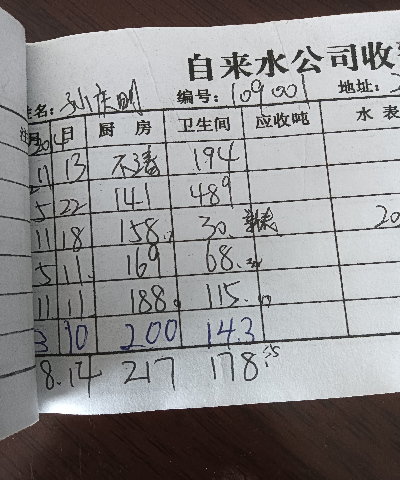 自来水公司收
名: 孙庆明 编号: 109001 地址:
月 日 厨 房 卫生间 应收吨 水 表
2014
11 13 不清 194
5 22 141 489
11 18 158. 30. 20
5 11. 169 68.
11 11 188. 115.
3 10 200 143
8.14 217 178